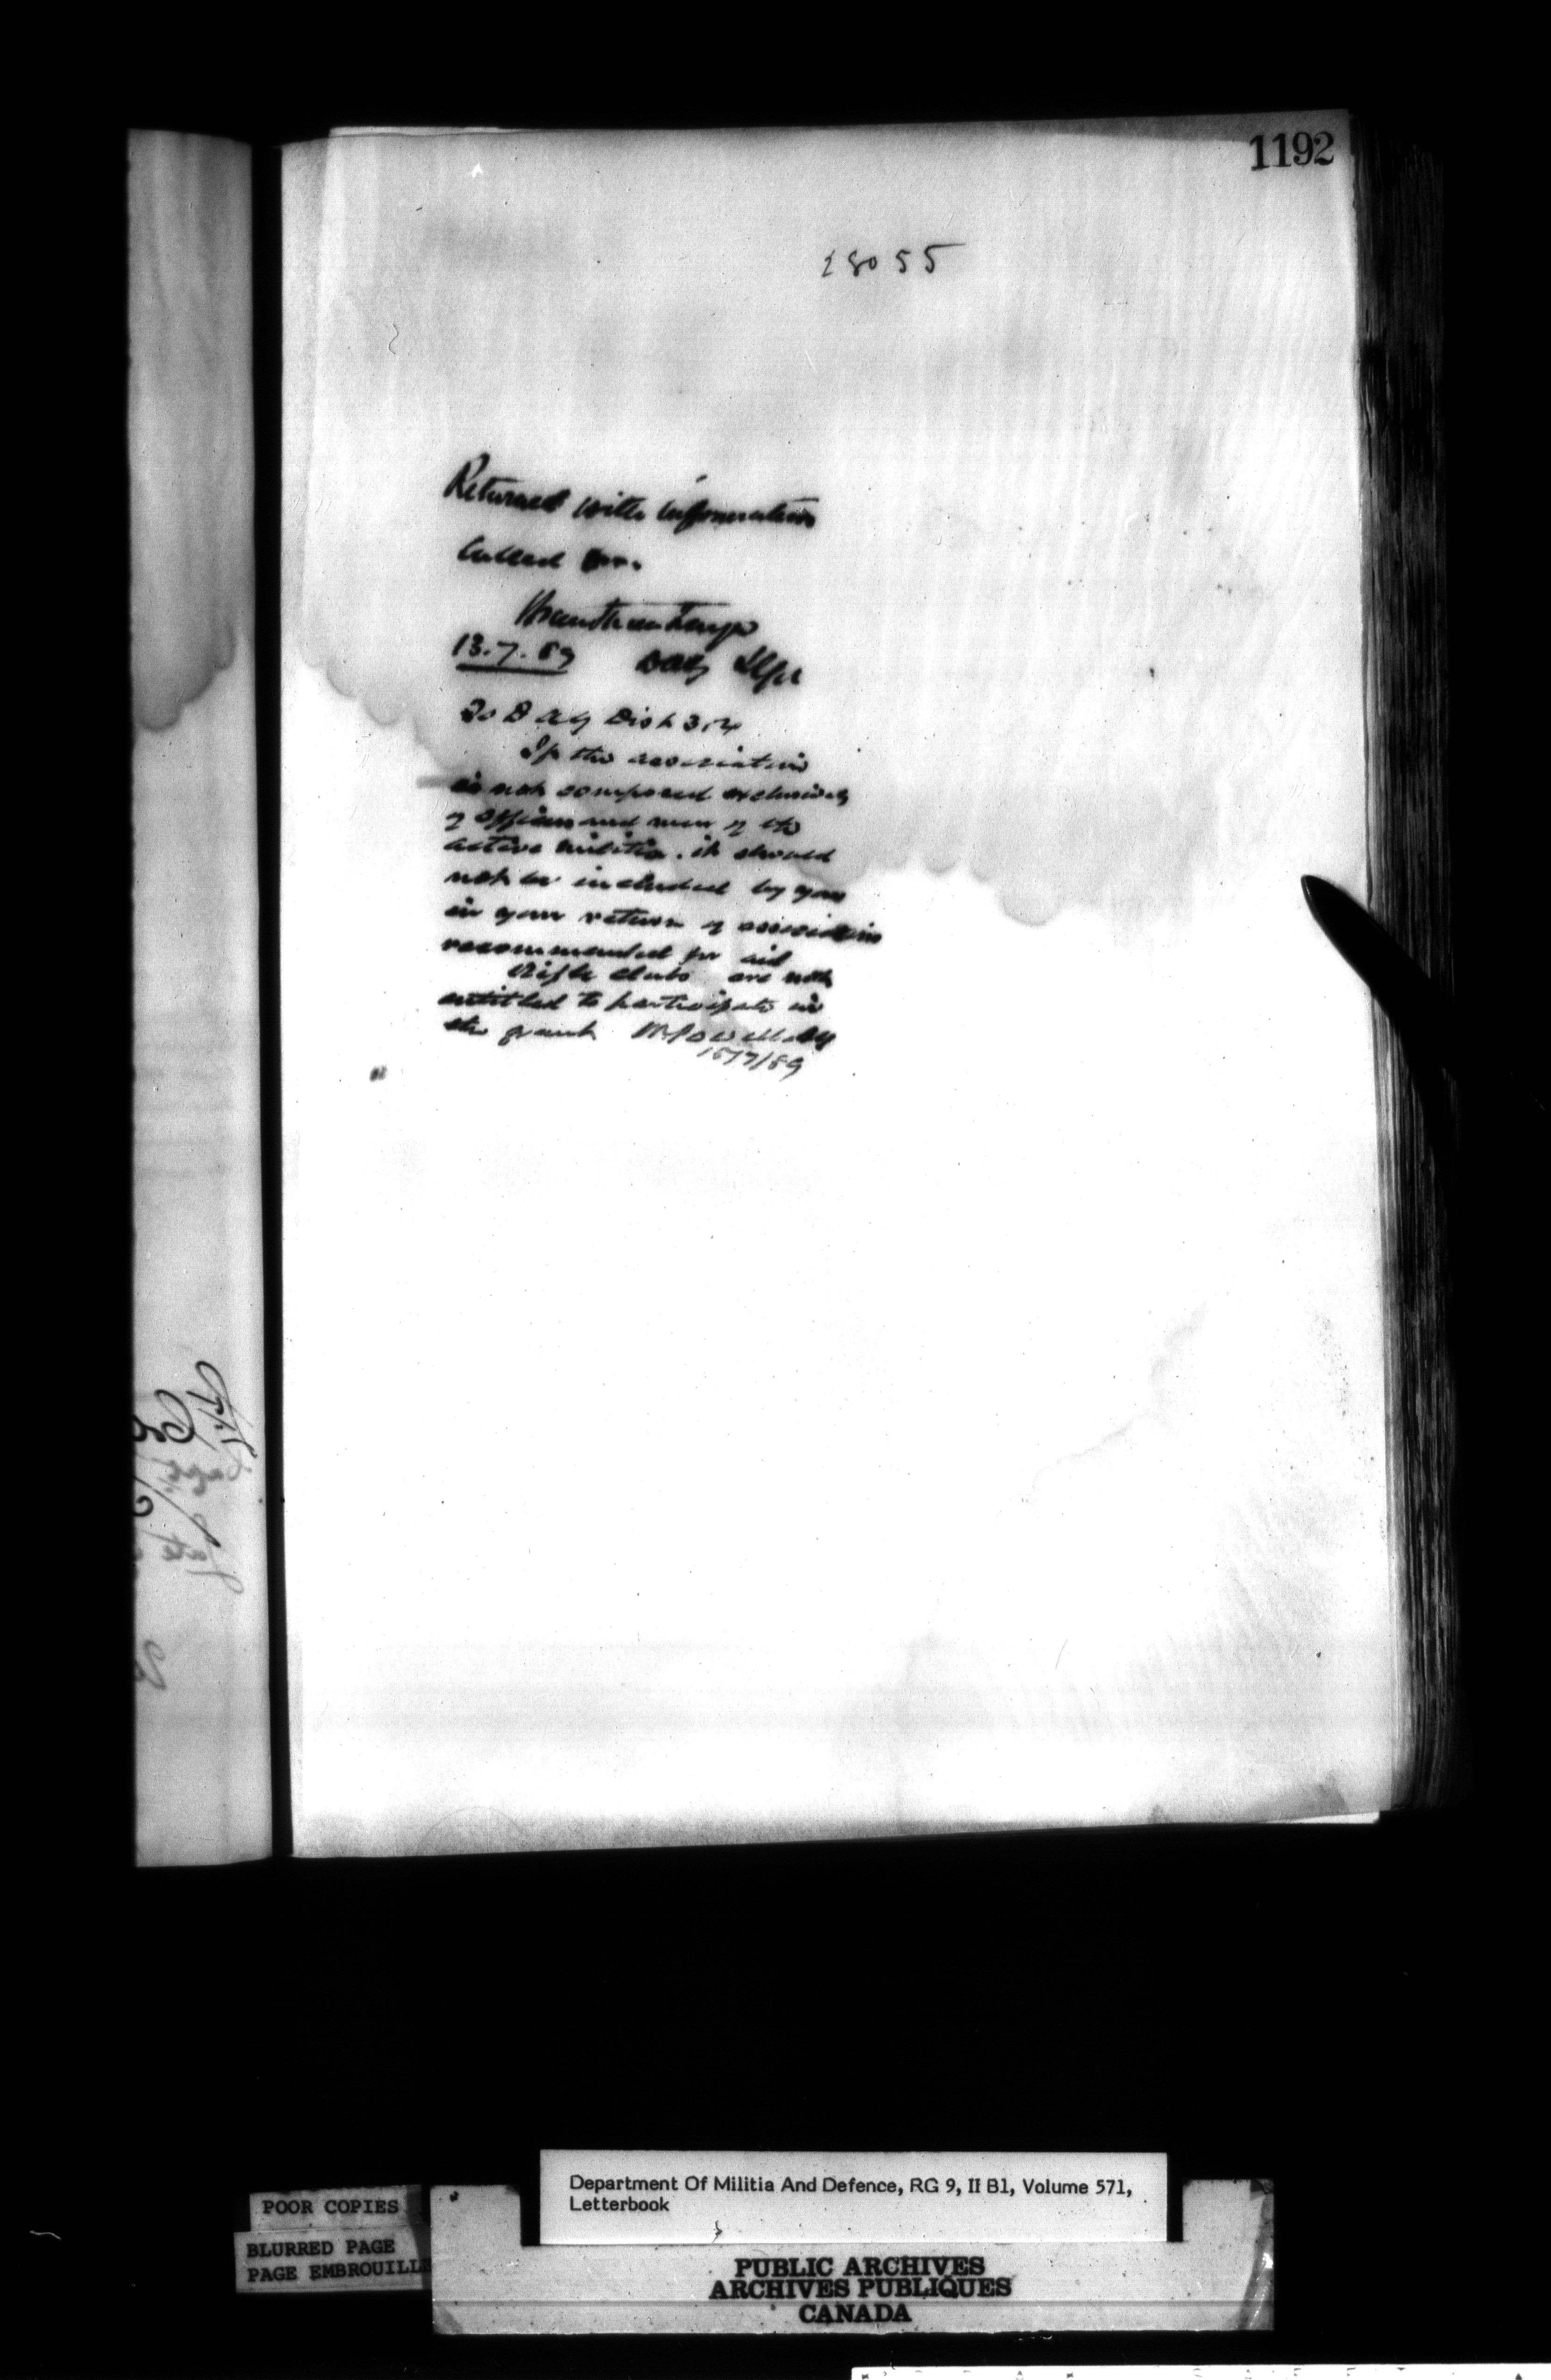 1192
28055
Returned with information
called for.
13.7.89 DAG
To D A G Dist 3 & 4
If the association
is not composed exclusively
of officers and men of the
active militia. it should
not be included by you
in your return of associations
recommended for aid
Rifle clubs are not
entitled to participate in
the grant W Powell AG
15/7/89
Department Of Militia And Defence, RG 9, II B1, Volume 571,
Letterbook
POOR COPIES
BLURRED PAGE
PAGE EMBROUILL
PUBLIC ARCHIVES
ARCHIVES PUBLIQUES
CANADA